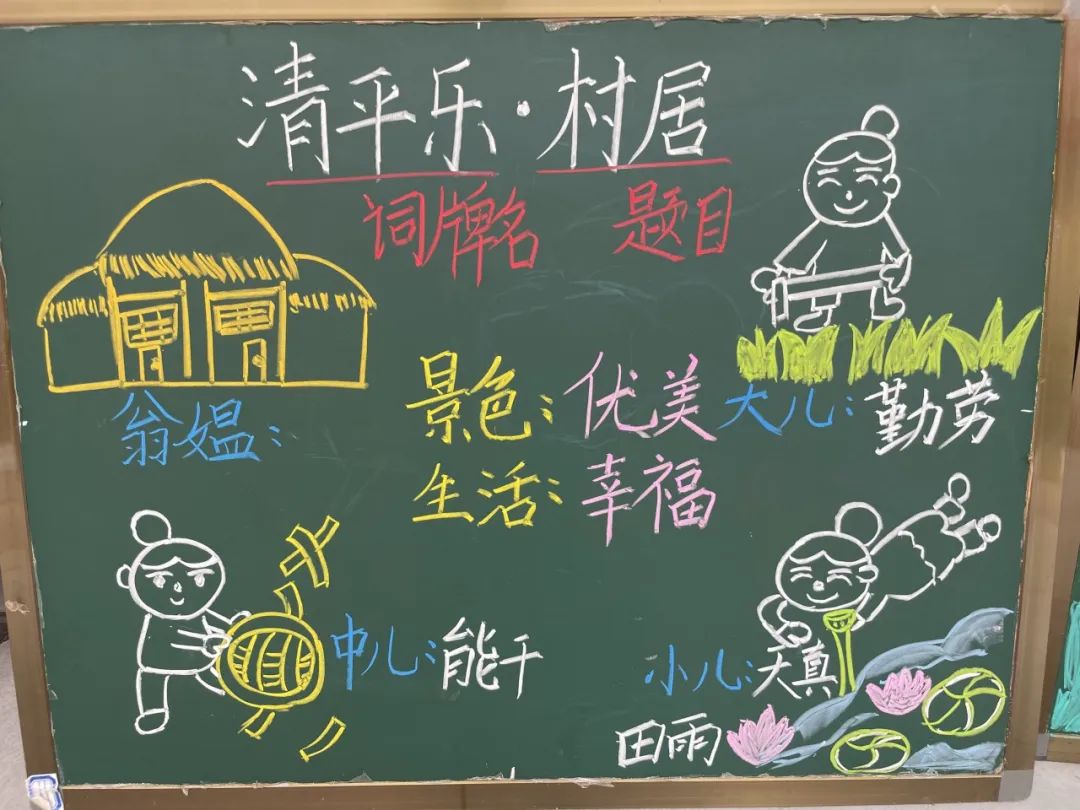 清平乐·村居
词牌名 题目
翁媪:
景色:优美
生活:幸福
大儿:勤劳
中儿:能干
小儿:天真
田雨